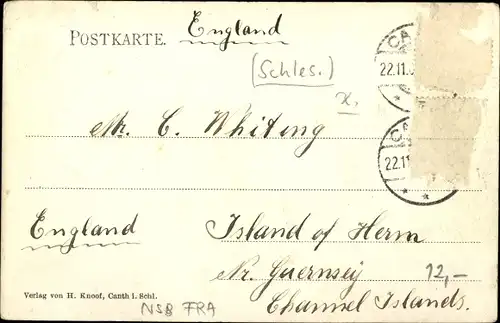 POSTKARTE.
England
(Schles.)
CA
22.11.
x.
Mr. C. Whiting
CA
22.11
England
Island of Herm
Nr. Guernsey
12,-
Channel Islands.
Verlag von H. Knoof, Canth i. Schl.
NSB FRA